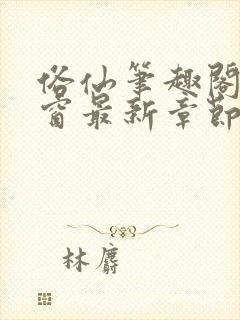 俗仙笔趣阁
窗最新章节
林麝